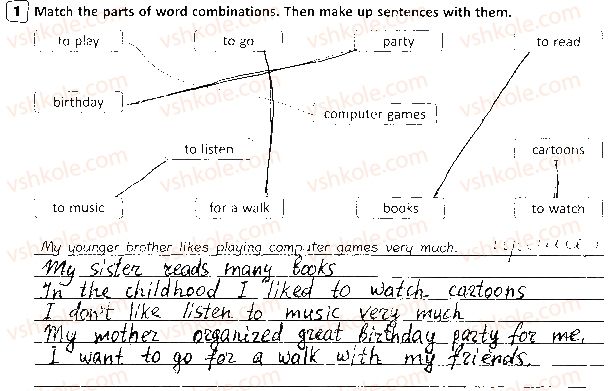 1 Match the parts of word combinations. Then make up sentences with them.
to play to go party to read
birthday
computer games
to listen cartoons
to music for a walk books to watch
My younger brother likes playing computer games very much.
My sister reads many books
In the childhood I liked to watch cartoons
I don't like listen to music very much
My mother organized great birthday party for me.
I want to go for a walk with my friends.
vshkole.com vshkole.com vshkole.com vshkole.com